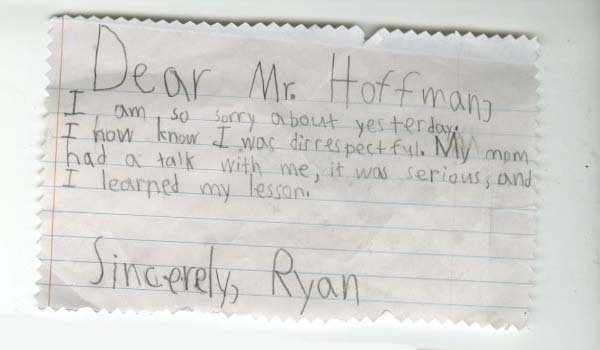 Dear Mr. Hoffman,
I am so sorry about yesterday.
I now know I was dirrespectful. My mom
had a talk with me, it was serious, and
I learned my lesson.
Sincerely, Ryan